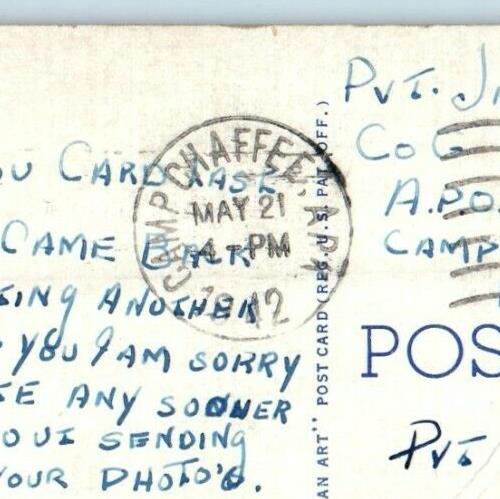 OU CARD LASE
CAME BACK
ING ANOTHER
YOU I AM SORRY
TE ANY SOONER
OU I SENDING
YOUR PHOTO'S.
CAMP CHAFFEE, ARK
MAY 21
4 - PM
1942
AN ART" POST CARD (REG. U.S. PAT. OFF.)
PVT. J
Co G
A.P.O.
CAMP
POS
PVT